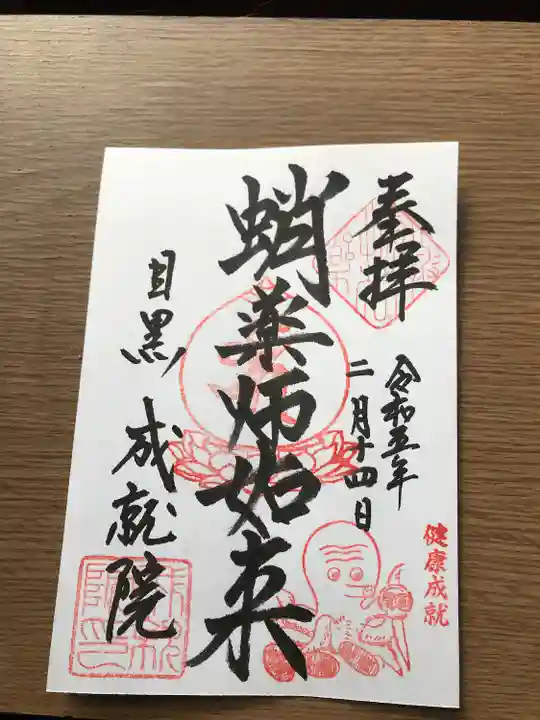 奉拝
令和五年
二月十四日
健康成就
蛸薬师如来
目黒 成就院